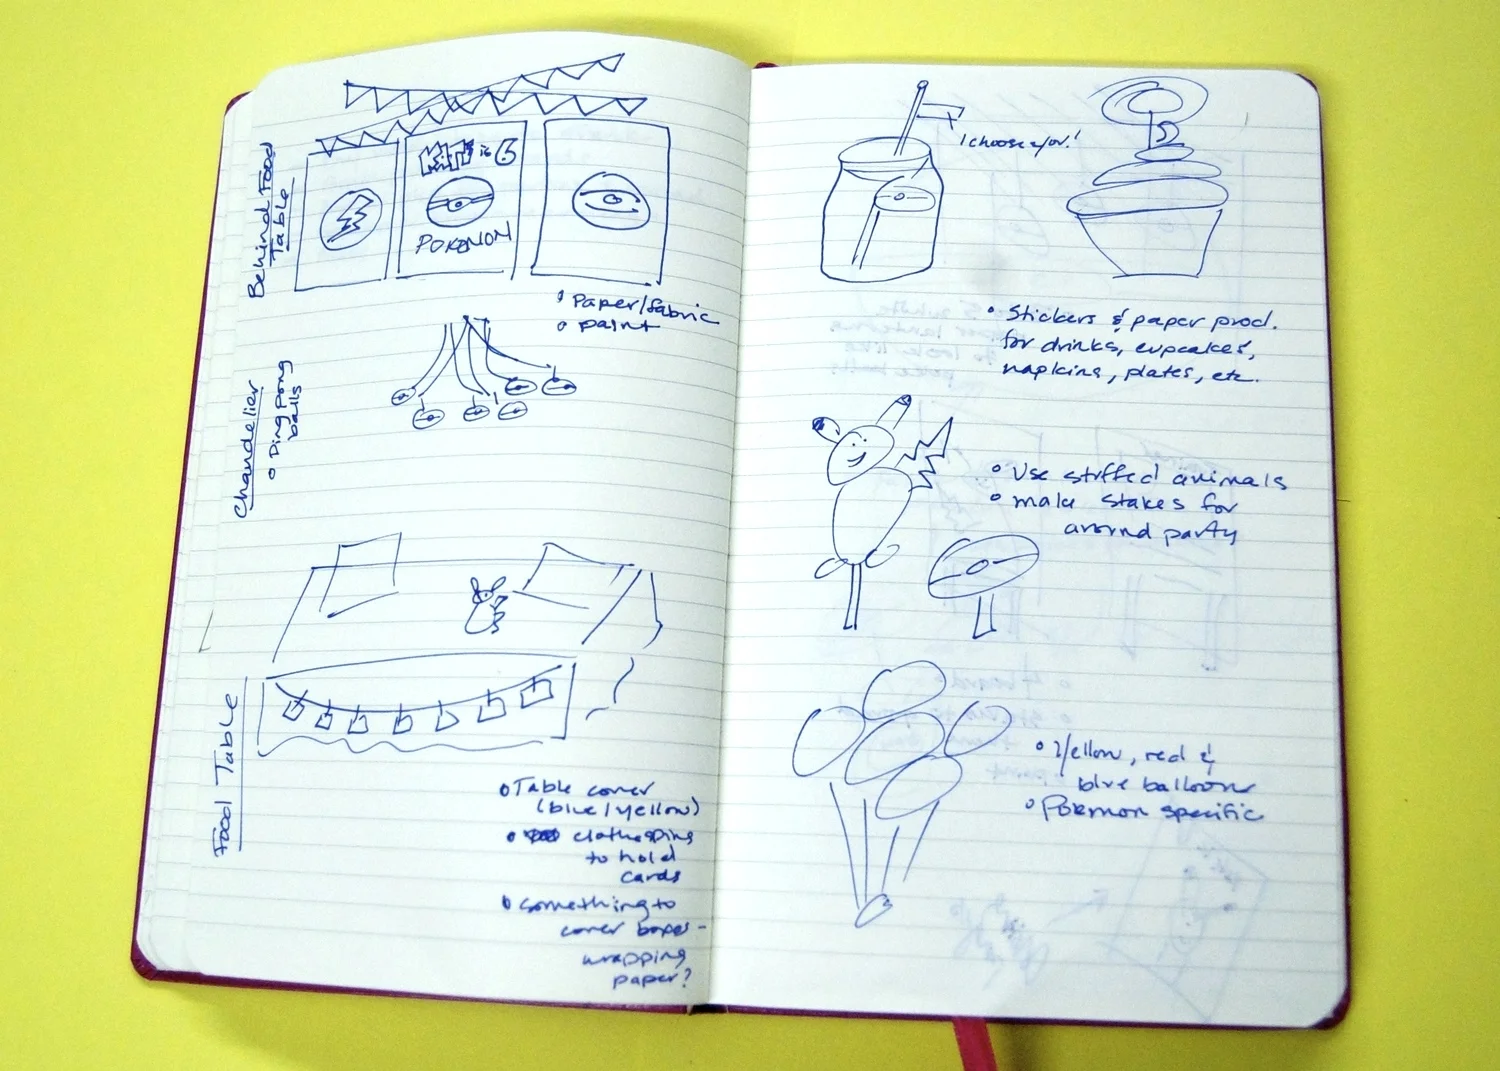 Behind Food
Table
is 6
POKEMON
o Paper/fabric
o paint
Chandelier
o Ping pong
balls
Food Table
o Table cover
(blue/yellow)
o clothespins
to hold
cards
o something to
cover boxes -
wrapping
paper?
I choose you!
o Stickers & paper prod.
for drinks, cupcakes,
napkins, plates, etc.
o Use stuffed animals
o make stakes for
around party
o Yellow, red &
blue balloons
o Pokemon specific